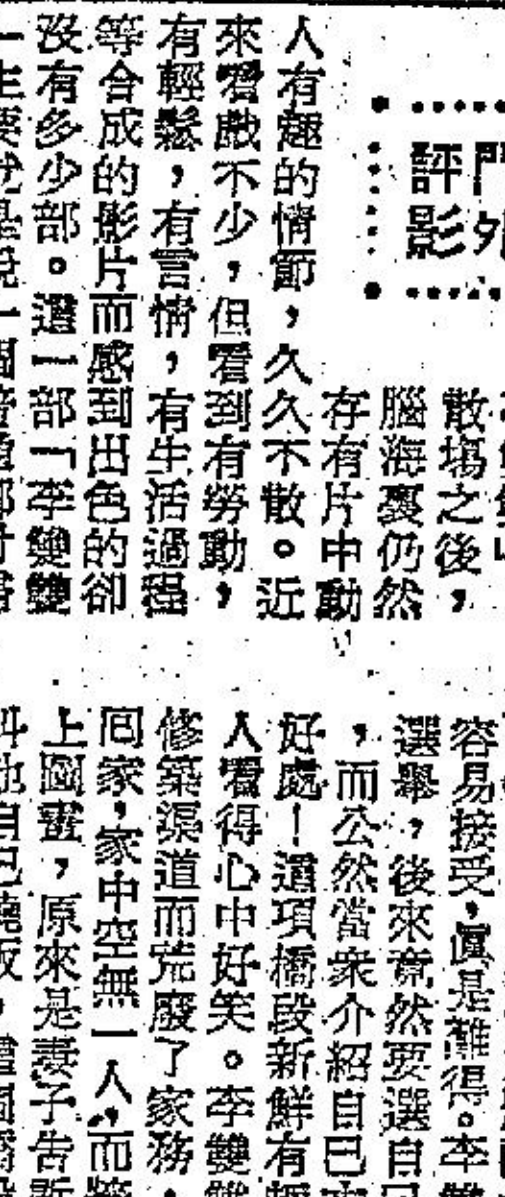 門外
評影
散塲之後，
腦海裏仍然
存有片中動
人有趣的情節，久久不散。近
來看戲不少，但看到有勞動，
有輕鬆，有言情，有生活過程
等合成的影片而感到出色的卻
沒有多少部。這一部「李雙雙
容易接受，眞是難得。李雙
選舉，後來竟然要選自己
，而公然當衆介紹自己
好處！這項橋段新鮮有
人看得心中好笑。李雙雙
修築渠道而荒廢了家務，
回家，家中空無一人，而
上圖畫，原來是妻子告